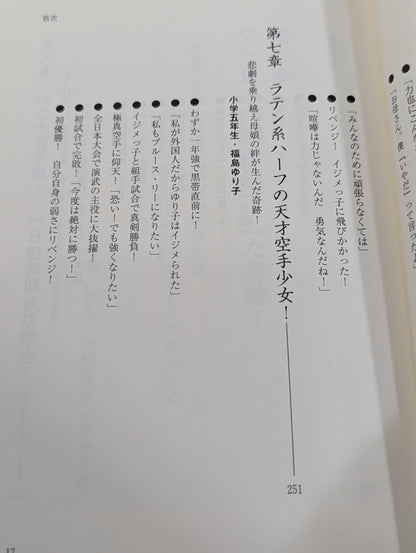 目次
「力也にこ
「お母さん、僕『いやだ』って言った
「みんなのために頑張らなくては」
リベンジ！　イジメっ子に飛びかかった！
「喧嘩は力じゃないんだ　勇気なんだね！」
第七章　ラテン系ハーフの天才空手少女！ 251
悲劇を乗り越え母娘の絆が生んだ奇跡！
小学五年生・福島ゆり子
わずか一年強で黒帯直前に！
「私が外国人だからゆり子はイジメられた」
「私もブルース・リーになりたい」
イジメっ子と組手試合で真剣勝負！
極真空手に仰天！「恐い！でも強くなりたい」
全日本大会で演武の主役に大抜擢！
初試合で完敗！「今度は絶対に勝つ！」
初優勝！　自分自身の弱さにリベンジ！
17